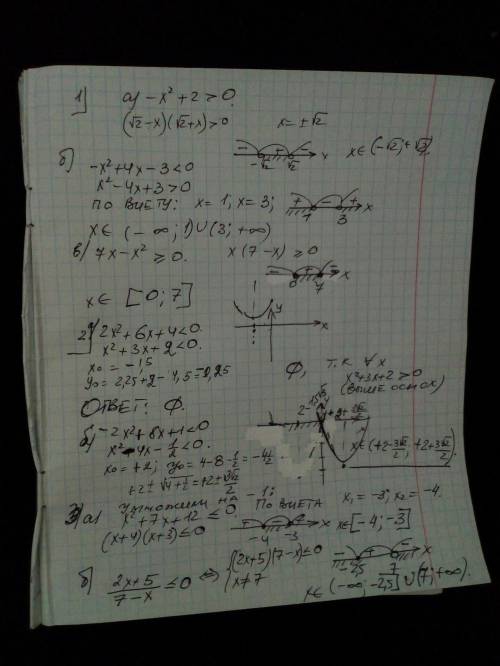 1) а) -x² + 2 > 0.
(√2 - x)(√2 + x) > 0 x = ±√2
- + - x
-√2 √2
x ∈ (-√2; +√2)
б) -x² + 4x - 3 < 0
x² - 4x + 3 > 0
по Виету: x = 1, x = 3;
+ - + x
1 3
x ∈ (-∞; 1) ∪ (3; +∞)
в) 7x - x² ≥ 0. x(7 - x) ≥ 0
- + - x
0 7
x ∈ [0; 7]
2) 2x² + 6x + 4 < 0.
x² + 3x + 2 < 0.
x₀ = -1,5
y₀ = 2,25 + 2 - 4,5 = 0,25
y
x
∅, т.к. ∀ x
x² + 3x + 2 > 0
(выше оси ox)
Ответ: ∅.
б) -2x² + 8x + 1 < 0
x² - 4x - 1/2 < 0.
x₀ = +2; y₀ = 4 - 8 - 1/2 = -4 1/2
+2 ± √4 + 1/2 = +2 ± 3√2/2
x ∈ (+2 - 3√2/2; +2 + 3√2/2)
умножили на -1;
3) а) x² + 7x + 12 ≤ 0. по Виета x₁ = -3; x₂ = -4.
(x + 4)(x + 3) ≤ 0
-4 -3 x
x ∈ [-4; -3]
б) 2x + 5 / 7 - x ≤ 0 ⇔ { (2x + 5)(7 - x) ≤ 0
x ≠ 7
- + - x
-2,5 7
x ∈ (-∞; -2,5] ∪ (7; +∞).